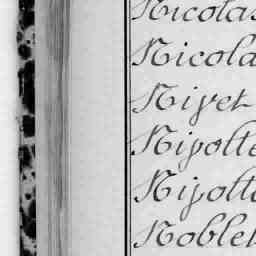 Nicolas
Nicola
Niyet
Niyolte
Niyolte
Noblet